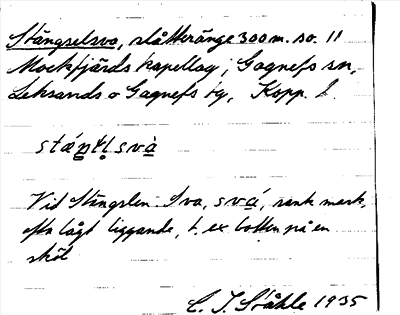 Stängselsva, slåtteränge 300 m. so. ll
Mockfjärds kapellag, Gagnefs sn,
Leksands o Gagnefs tg, Kopp. l.
svà
Vid Stängslen. Sva, svá, sank mark,
ofta lågt liggande, t. ex botten på en
sköl
C. I. Ståhle 1935